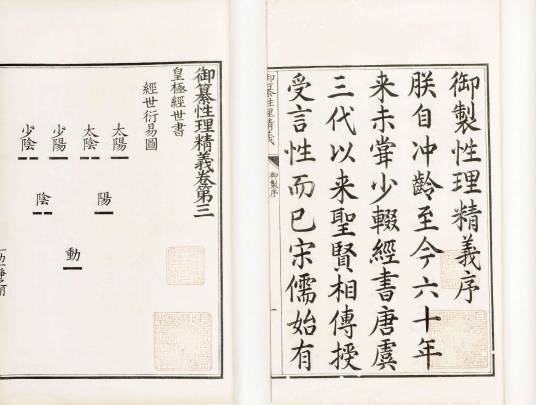 御製性理精義序
朕自冲齡至今六十年
来未甞少輟經書唐虞
三代以来聖賢相傳授
受言性而已宋儒始有
御纂性理精義
御製序
御纂性理精義卷第三
皇極經世書
經世衍易圖
太陽
太陰
少陽
少陰
陽
陰
動